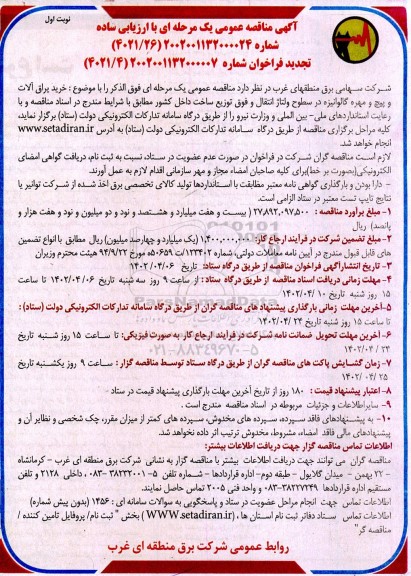 نوبت اول
آگهی مناقصه عمومی یک مرحله ای با ارزیابی ساده
شماره ۲۰۰۲۰۰۱۱۳۲۰۰۰۰۲۴ (۴۰۲۱/۲۶)
تجدید فراخوان شماره ۲۰۰۲۰۰۱۱۳۲۰۰۰۰۰۷ (۴۰۲۱/۴)
شرکت سهامی برق منطقهای غرب در نظر دارد مناقصه عمومی یک مرحله ای فوق الذکر را با موضوع : خرید یراق آلات
و پیچ و مهره گالوانیزه در سطوح ولتاژ انتقال و فوق توزیع ساخت داخل کشور مطابق با شرایط مندرج در اسناد مناقصه و با
رعایت استانداردهای ملی- بین المللی و وزارت نیرو را از طریق درگاه سامانه تدارکات الکترونیکی دولت (ستاد) برگزار نماید،
کلیه مراحل برگزاری مناقصه از طریق درگاه سامانه تدارکات الکترونیکی دولت (ستاد) به آدرس www.setadiran.ir
انجام خواهد شد.
لازم است مناقصه گران شرکت در فراخوان در صورت عدم عضویت در ستاد، نسبت به ثبت نام، دریافت گواهی امضای
الکترونیکی(بصورت بر خط)برای کلیه صاحبان امضاء مجاز و مهر سازمانی اقدام لازم به عمل آورند.
- دارا بودن و بارگذاری گواهی نامه معتبر مطابقت با استانداردها تولید کالای تخصصی برق اخذ شده از شرکت توانیر یا
نتایج تایپ تست معتبر در ستاد الزامی است.
۱- مبلغ برآورد مناقصه : ۲۷،۸۹۲،۰۹۷،۵۰۰ ( بیست و هفت میلیارد و هشتصد و نود و دو میلیون و نود و هفت هزار و
پانصد) ریال
۲- مبلغ تضمین شرکت در فرآیند ارجاع کار: ۱،۴۰۰،۰۰۰،۰۰۰ (یک میلیارد و چهارصد میلیون) ریال مطابق با انواع تضمین
های قابل قبول مندرج در آیین نامه معاملات دولتی، شماره ۱۲۳۴۰۲/ت۵۰۶۵۹ه مورخ ۹۴/۹/۲۲ هیئت محترم وزیران
۳- تاریخ انتشارآگهی فراخوان مناقصه از طریق درگاه ستاد: تاریخ ۱۴۰۲/۰۴/۰۶
۴- مهلت زمانی دریافت اسناد مناقصه از طریق درگاه ستاد : از ساعت ۹ روز سه شنبه تاریخ ۱۴۰۲/۰۴/۰۶ تا ساعت
۱۵ روز شنبه تاریخ ۱۴۰۲/۰۴/۱۰
۵- آخرین مهلت زمانی بارگذاری پیشنهاد های مناقصه گران از طریق درگاه سامانه تدارکات الکترونیکی دولت (ستاد) :
تا ساعت ۱۵ روز شنبه تاریخ ۱۴۰۲/۰۴/۲۴
۶- آخرین مهلت تحویل ضمانت نامه شرکت در فرآیند ارجاع کار به صورت فیزیکی: تا ساعت ۱۵ روز شنبه تاریخ
۱۴۰۲/۰۴/۲۴
۷- زمان گشایش پاکت های مناقصه گران از طریق درگاه ستاد توسط مناقصه گزار : ساعت ۹ روز یکشنبه تاریخ
۱۴۰۲/۰۴/۲۵
۸- اعتبار پیشنهاد قیمت : ۱۸۰ روز از تاریخ آخرین مهلت بارگذاری پیشنهاد قیمت در ستاد
۹- سایر اطلاعات و جزئیات مربوطه در اسناد مناقصه مندرج است .
۱۰- به پیشنهادهای فاقد سپرده، سپرده های مخدوش، سپرده های کمتر از میزان مقرر، چک شخصی و نظایر آن و
پیشنهادهای مالی فاقد امضاء، مشروط، مخدوش ترتیب اثر داده نخواهد شد.
اطلاعات تماس مناقصه گزار جهت دریافت اطلاعات بیشتر:
مناقصه گران می توانند جهت دریافت اطلاعات بیشتر با مناقصه گزار به نشانی شرکت برق منطقه ای غرب – کرمانشاه
- ۲۲ بهمن - میدان گلایول - طبقه دوم- اداره قراردادها - شماره تلفن ۵-۳۸۲۳۲۰۰۱-۰۸۳ ، داخلی ۲۱۲۸ و تلفن
مستقیم اداره قراردادها ۳۸۲۲۷۲۴۹-۰۸۳ و واحد فنی ۲۰۰۵ تماس حاصل نمایند.
اطلاعات تماس جهت انجام مراحل عضویت در ستاد و پاسخگویی به سوالات سامانه ای : ۱۴۵۶ (بدون پیش شماره)
اطلاعات تماس ستاد دفاتر ثبت نام استان ها ، (WWW.setadiran.ir ) بخش " ثبت نام/ پروفایل تامین کننده /
مناقصه گر"
روابط عمومی شرکت برق منطقه ای غرب